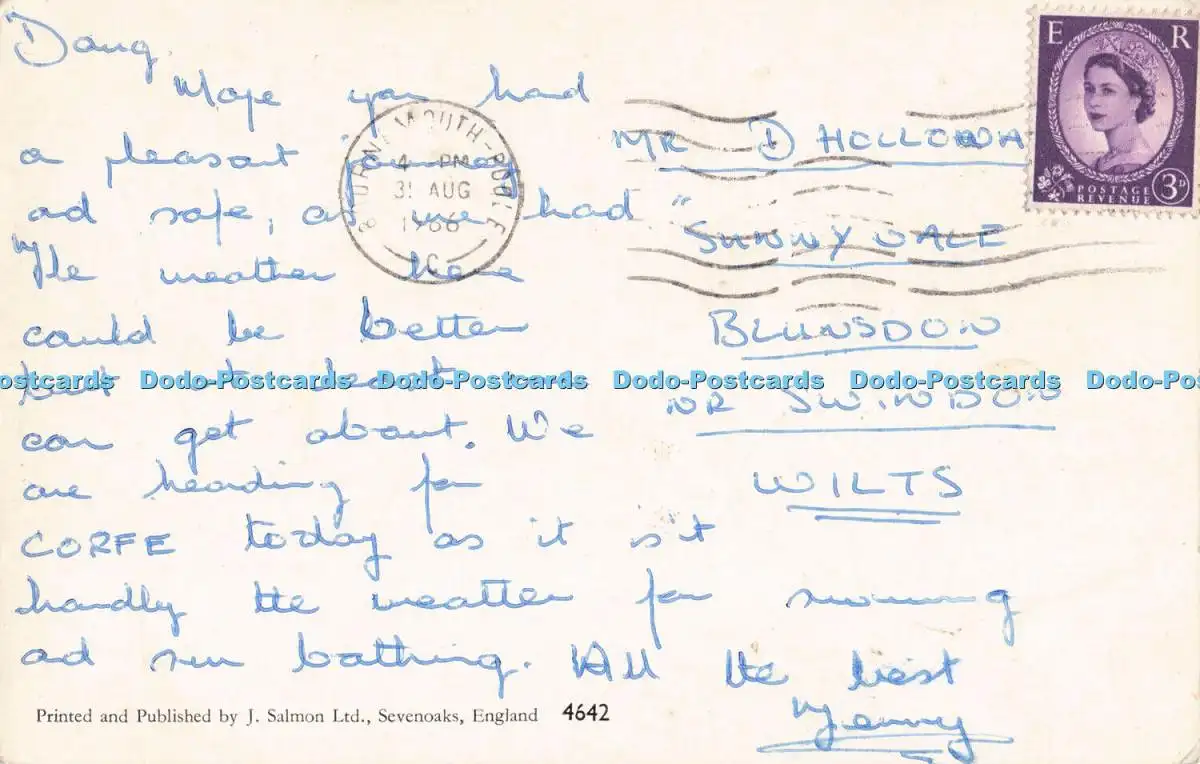 Doug,
Hope you had
a pleasant journey
ad safe, as we had
The weather here
could be better
but at least we
can get about. We
are heading for
CORFE today as it is't
hardly the weather for swimming
ad sun bathing. All the best
Jenny
MR D HOLLOWA
"SUNNY DALE
BLUNSDON
NR SWINDON
WILTS
BOURNEMOUTH-POOLE
4 - PM
31 AUG
1966
C
E R
POSTAGE
REVENUE
3D
Dodo-Postcards Dodo-Postcards Dodo-Postcards Dodo-Postcards
Printed and Published by J. Salmon Ltd., Sevenoaks, England 4642